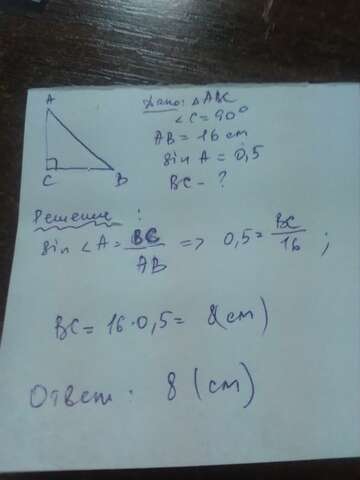 A
C
B
Дано: △ABC
∠C = 90°
AB = 16 cm
sin A = 0,5
BC - ?
Решение :
sin ∠A = BC/AB => 0,5 = BC/16 ;
BC = 16·0,5 = 8(см)
Ответ : 8 (см)